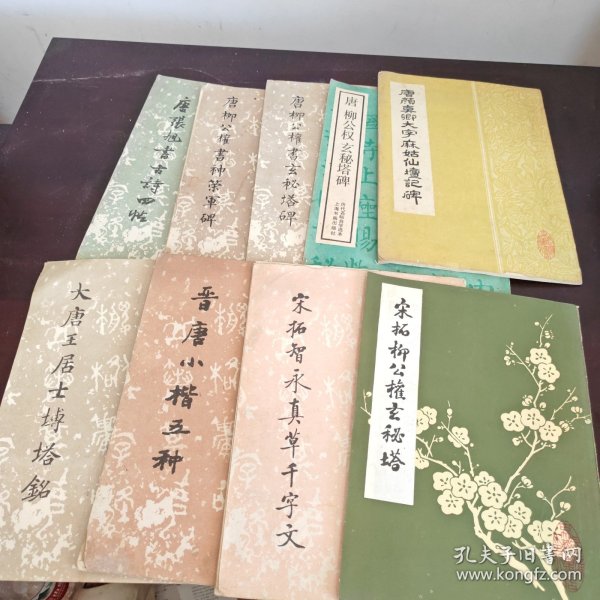 唐張旭書古詩四帖
唐柳公權書神策軍碑
唐柳公權書玄秘塔碑
唐柳公权玄秘塔碑
历代碑帖法书选
上海书画出版社
唐颜真卿大字麻姑仙壇記碑
大唐王居士塼塔銘
晋唐小楷五种
宋拓智永真草千字文
宋拓柳公權玄秘塔
孔夫子旧书网
www.kongfz.com